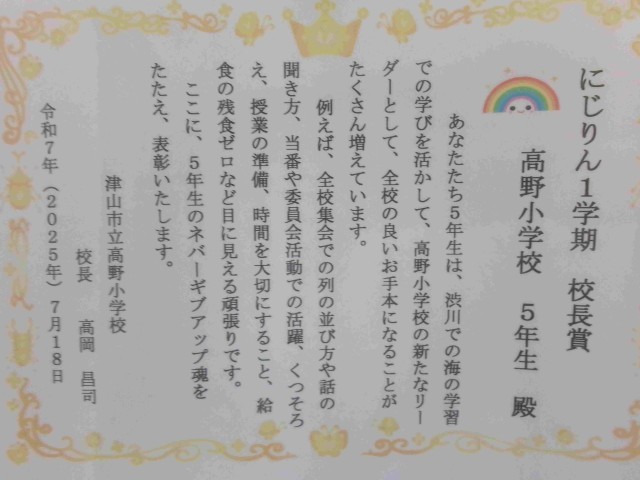 にじりん1学期　校長賞
高野小学校　5年生　殿
あなたたち5年生は、渋川での海の学習
での学びを活かして、高野小学校の新たなリー
ダーとして、全校の良いお手本になることが
たくさん増えています。
例えば、全校集会での列の並び方や話の
聞き方、当番や委員会活動での活躍、くつそろ
え、授業の準備、時間を大切にすること、給
食の残食ゼロなど目に見える頑張りです。
ここに、5年生のネバーギブアップ魂を
たたえ、表彰いたします。
津山市立高野小学校
校長　高岡　昌司
令和7年（2025年）7月18日